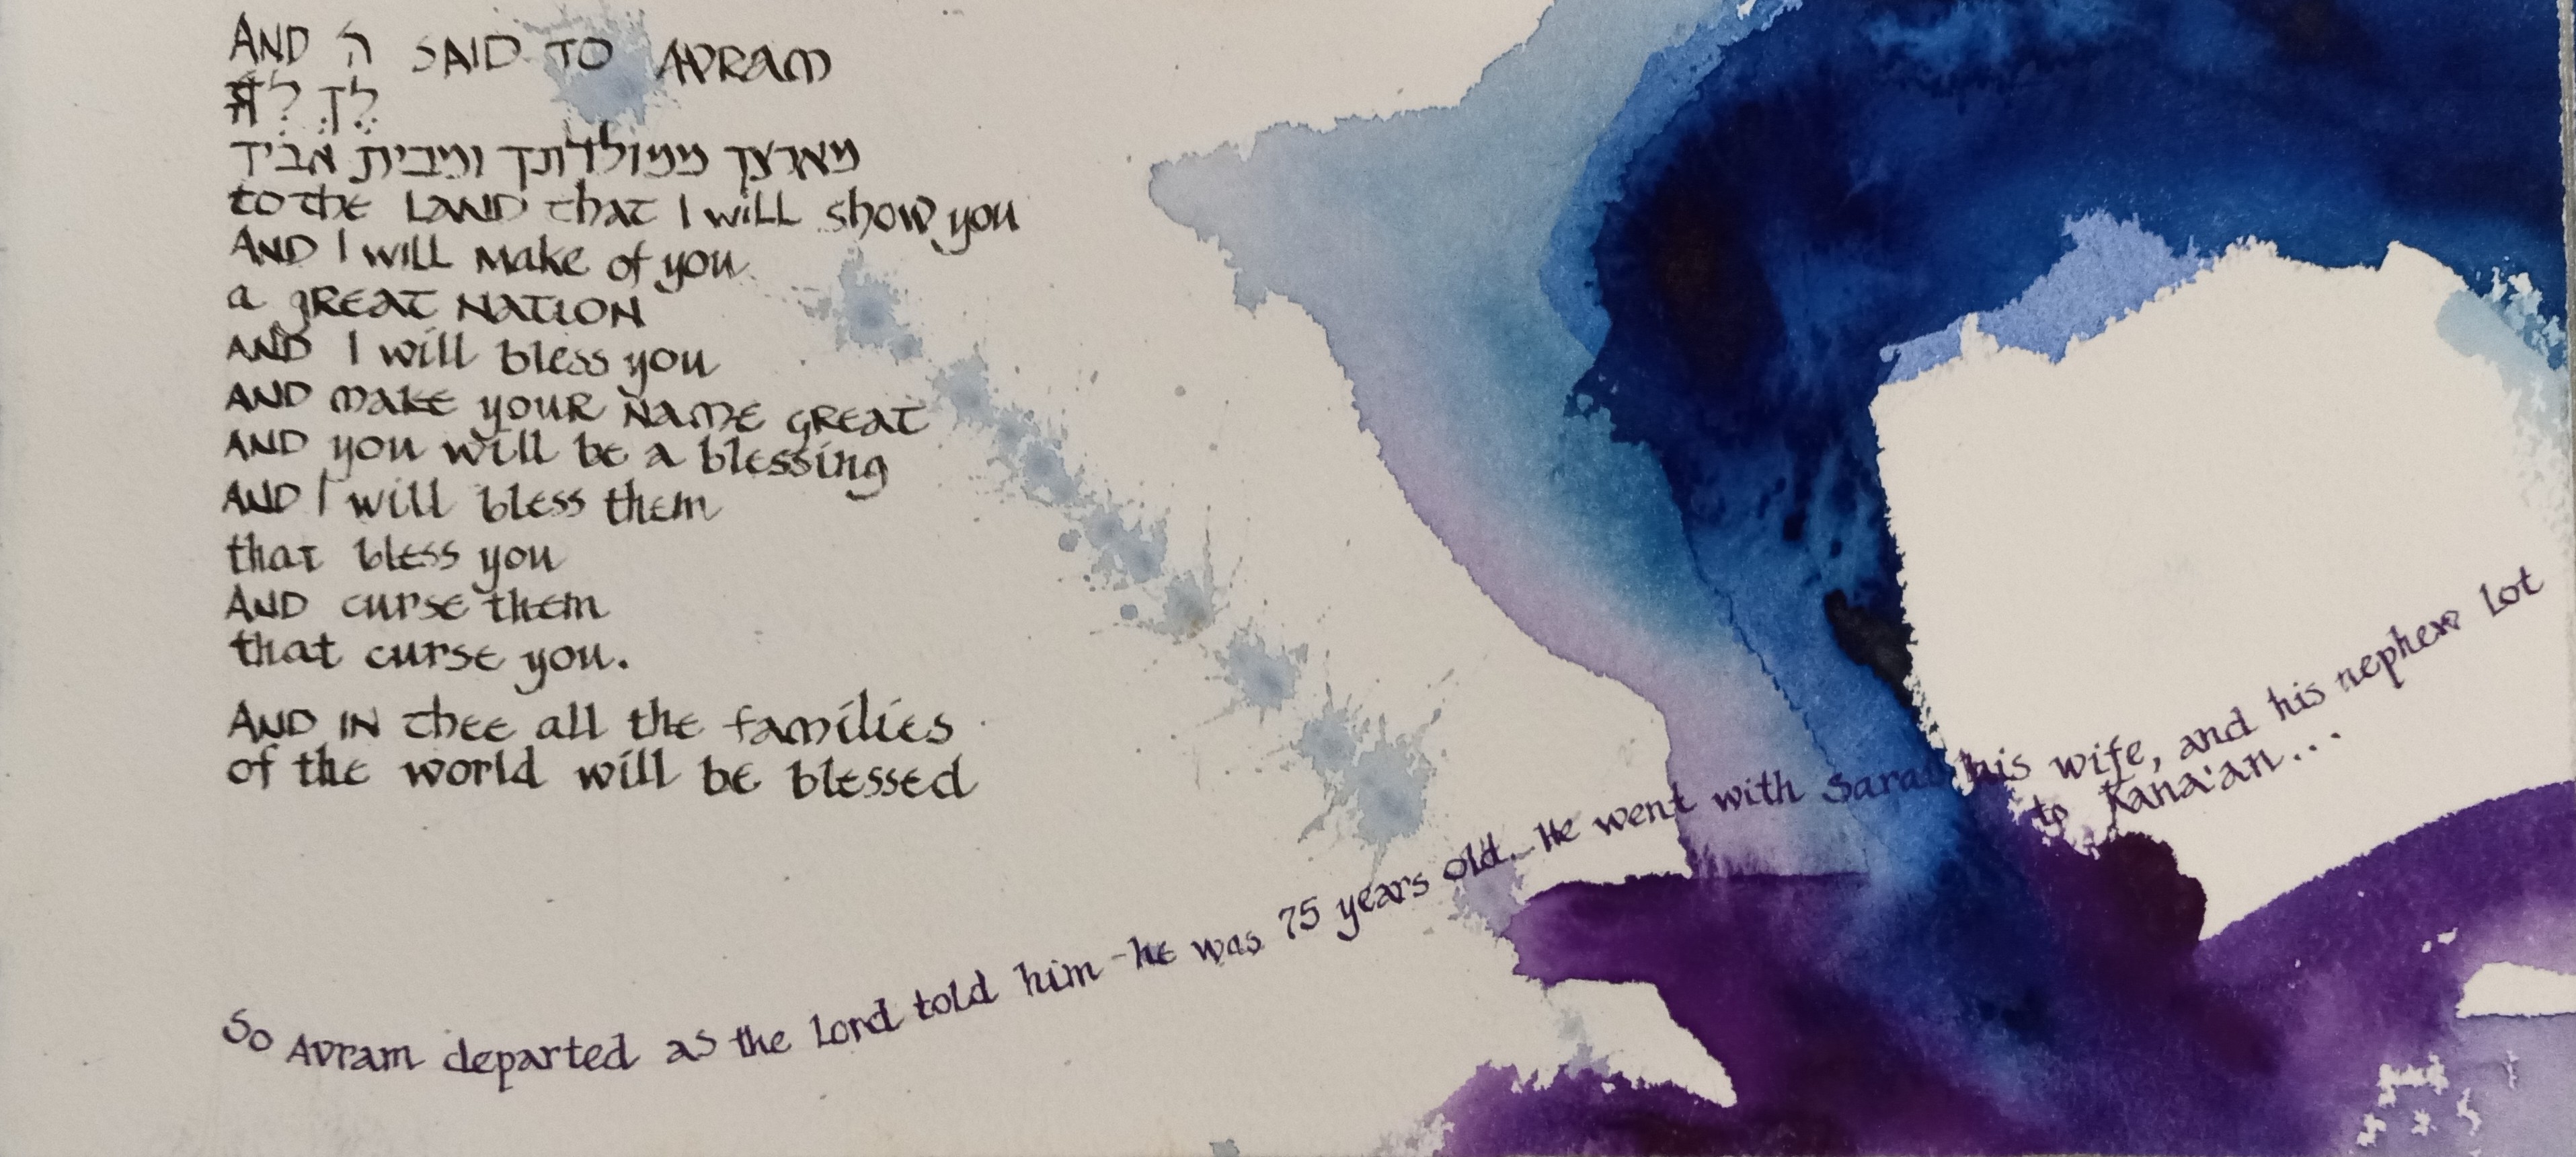 AND ה SAID TO AVRAM
לך לך
מארצך ממולדתך ומבית אביך
to the LAND that I will show you
AND I will make of you
a GREAT NATION
AND I will bless you
AND make your NAME GREAT
AND you will be a blessing
AND I will bless them
that bless you
AND curse them
that curse you.
AND IN thee all the families
of the world will be blessed
So Avram departed as the Lord told him - he was 75 years old. He went with Sarai his wife, and his nephew Lot
to Kana'an...